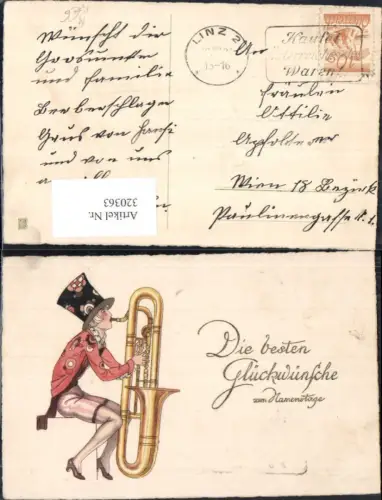 Wünscht die
und Familie
Berberschlager
Grus von Hansi
und von uns
LINZ 2
Kauft
Waren
An
Fräulein
Ottilie
Wien 18 Bezirk
Paulinengasse
Artikel Nr.
320363
Die besten
Glückwünsche
zum Namenstage